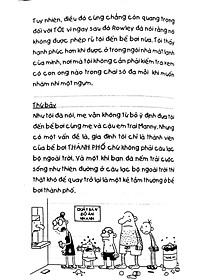 Tuy nhiên, điều đó cũng chẳng còn quan trọng
đối với TỚI vì ngay sau đó Rowley đã nói rằng nó
không được phép rủ tôi đến bể bơi nữa. Tôi thấy
hạnh phúc hơn khi được ở trong ngôi nhà mát lạnh
của mình, nơi mà tôi không cần phải kiểm tra xem
có con ong nào trong chai sô đa mỗi khi muốn
nhâm nhi một ngụm.
Thứ bảy
Như tôi đã nói, mẹ vẫn không từ bỏ ý định đưa tôi
đến bể bơi cùng mẹ và cậu em trai Manny. Nhưng
có một vấn đề là, gia đình tôi chỉ là thành viên
của bể bơi THÀNH PHỐ chứ không phải câu lạc
bộ ngoài trời. Và một khi bạn đã nếm trải cuộc
sống như thiên đường ở câu lạc bộ ngoài trời thì
thật khó để quay trở lại là một kẻ tầm thường ở bể
bơi thành phố.
QUẦY BÁN
ĐỒ ĂN
NHANH